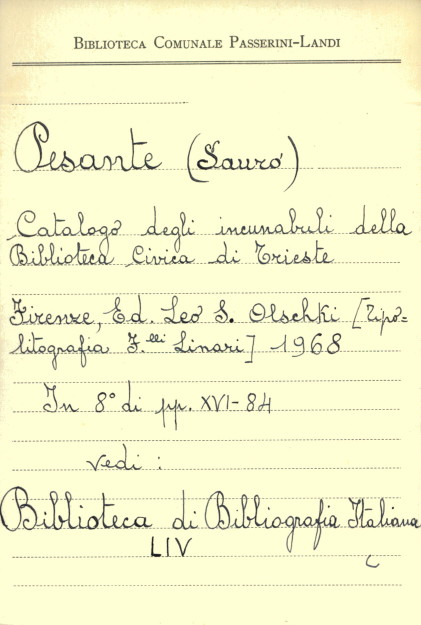 BIBLIOTECA COMUNALE PASSERINI-LANDI
Pesante (Sauro)
Catalogo degli incunabuli della
Biblioteca Civica di Trieste
Firenze, Ed. Leo S. Olschki [Tipo=
litografia F.lli Linari] 1968
In 8° di pp. XVI-84
vedi :
Biblioteca di Bibliografia Italiana
LIV